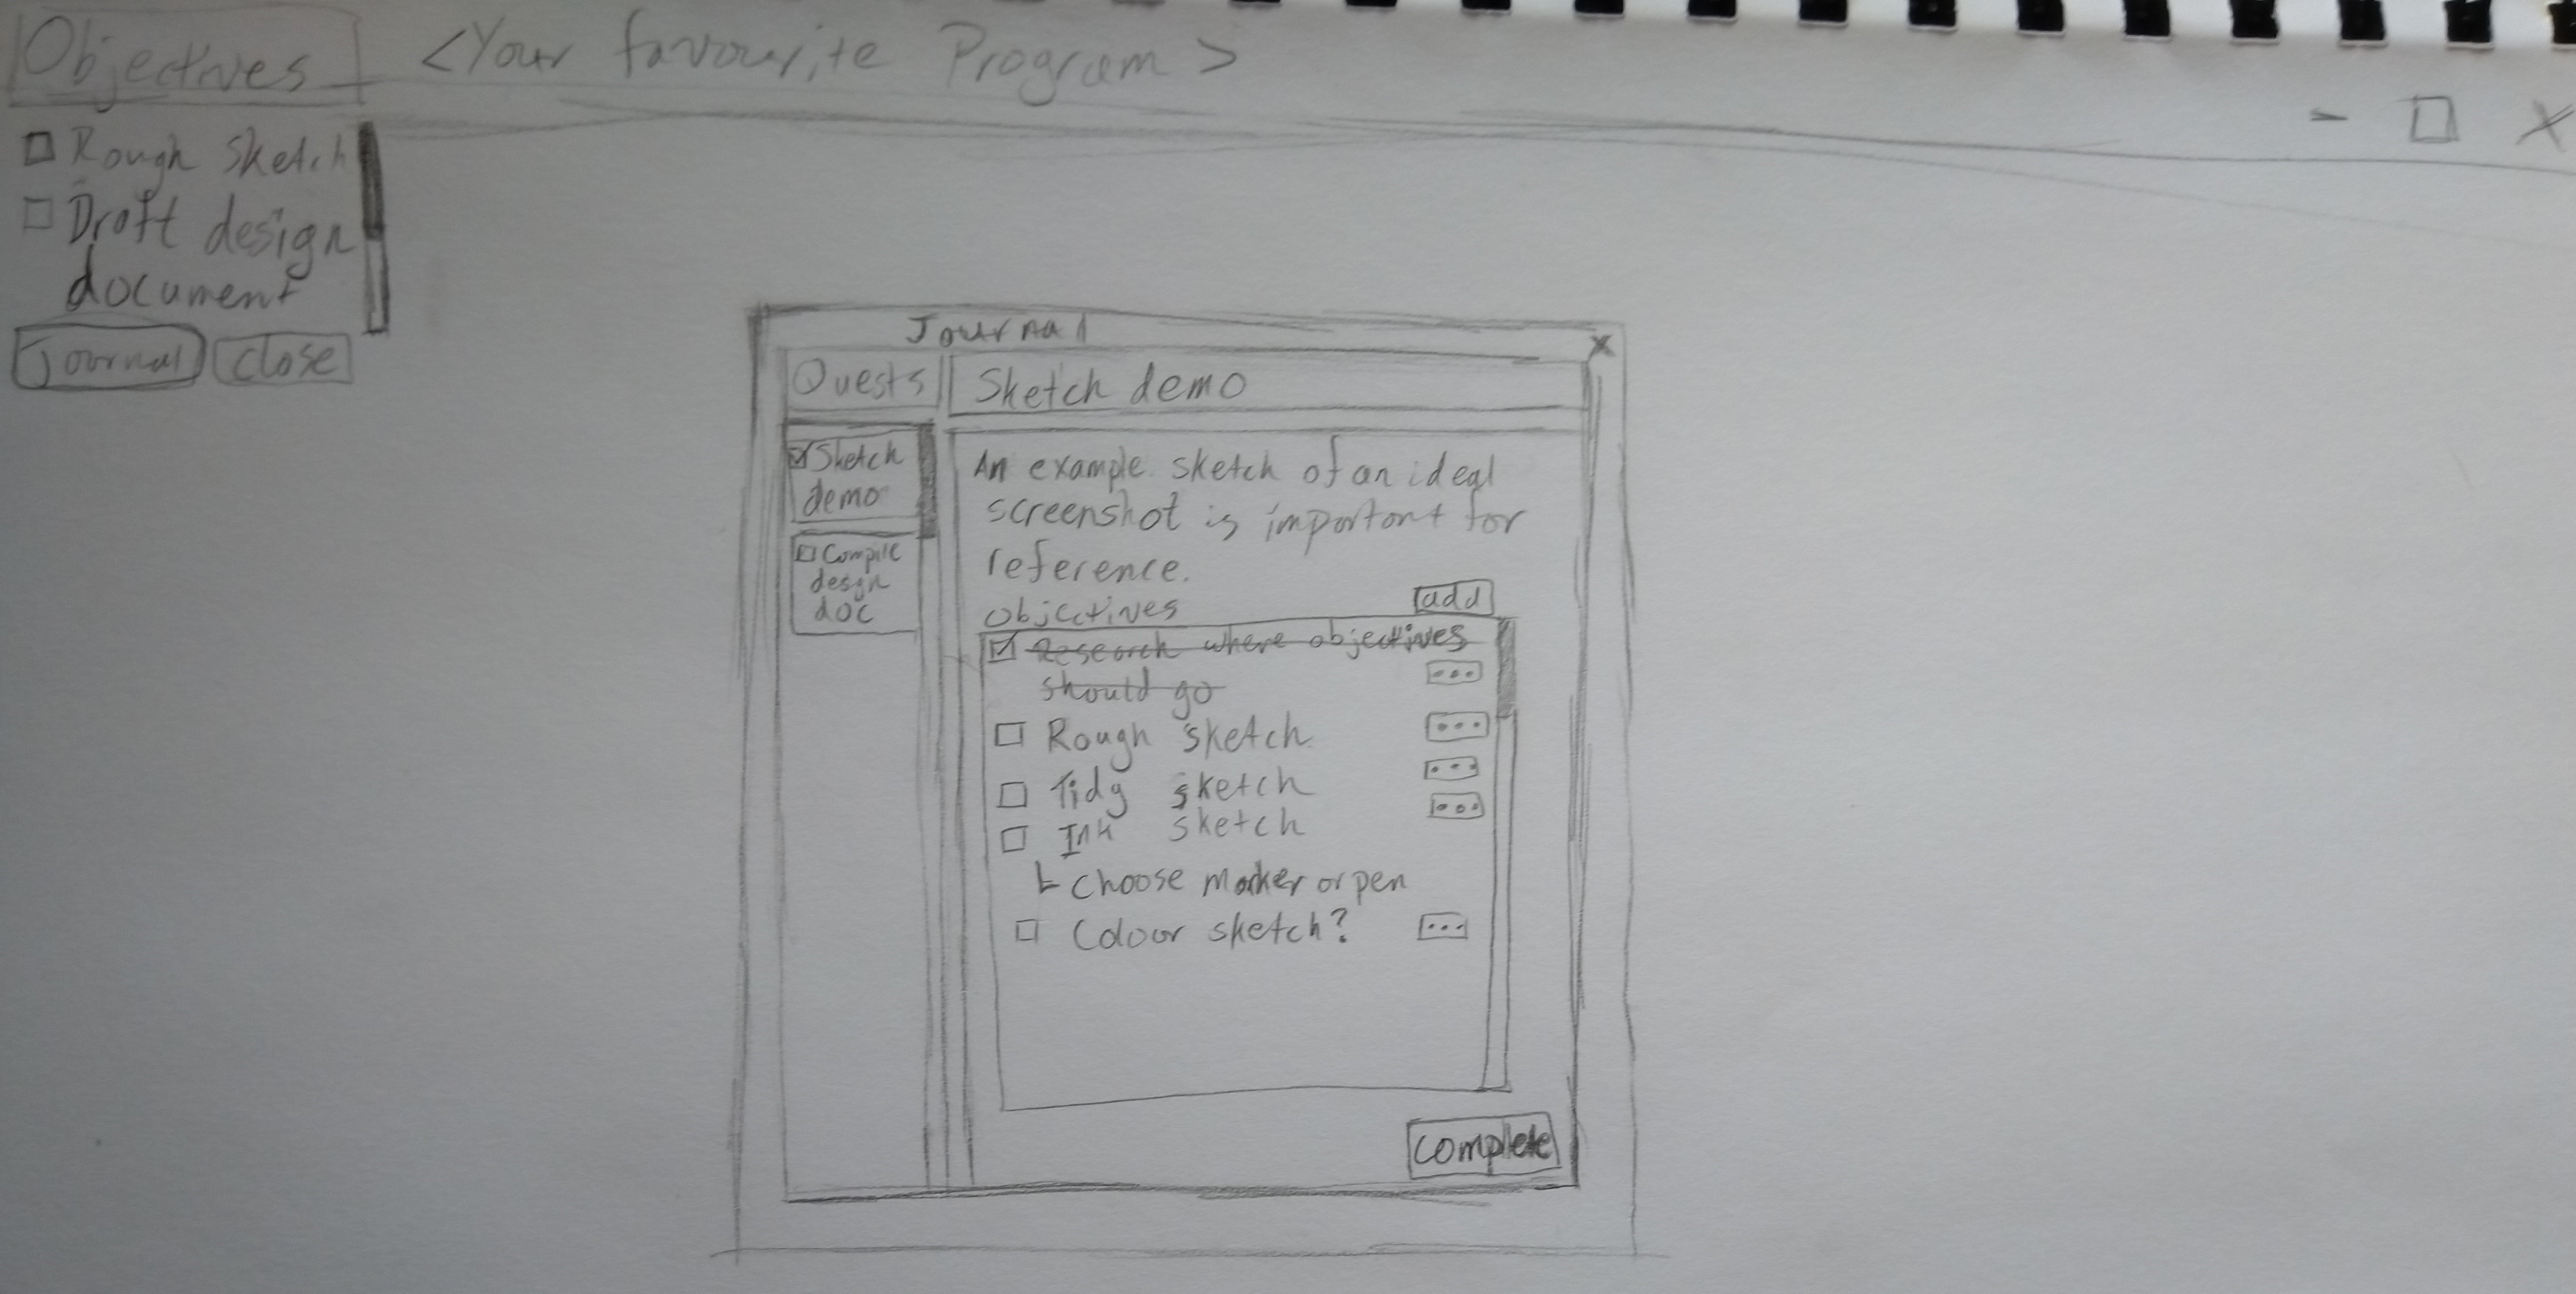 Objectives
<Your favourite Program>
Rough sketch
Draft design
document
Journal
close
Journal
x
Quests
Sketch demo
Sketch
demo
Compile
design
doc
An example sketch of an ideal
screenshot is important for
reference.
objectives
add
Research where objectives
should go
Rough sketch
Tidy sketch
Ink sketch
Choose marker or pen
Colour sketch?
complete